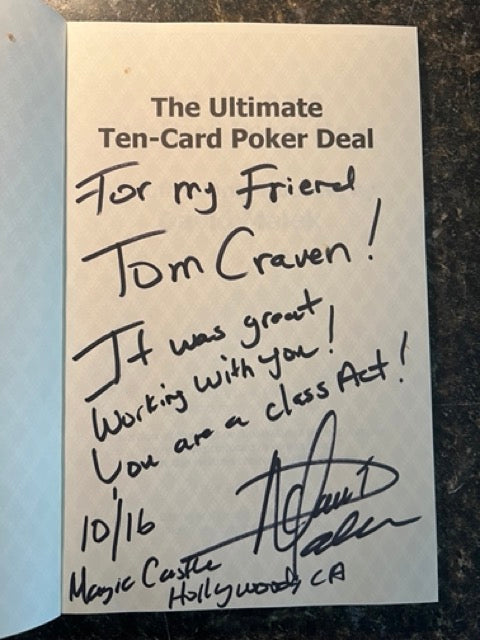 The Ultimate
Ten-Card Poker Deal
For my Friend
Tom Craven!
It was great
Working with you!
You are a class Act!
10/16
Magic Castle
Hollywood, CA